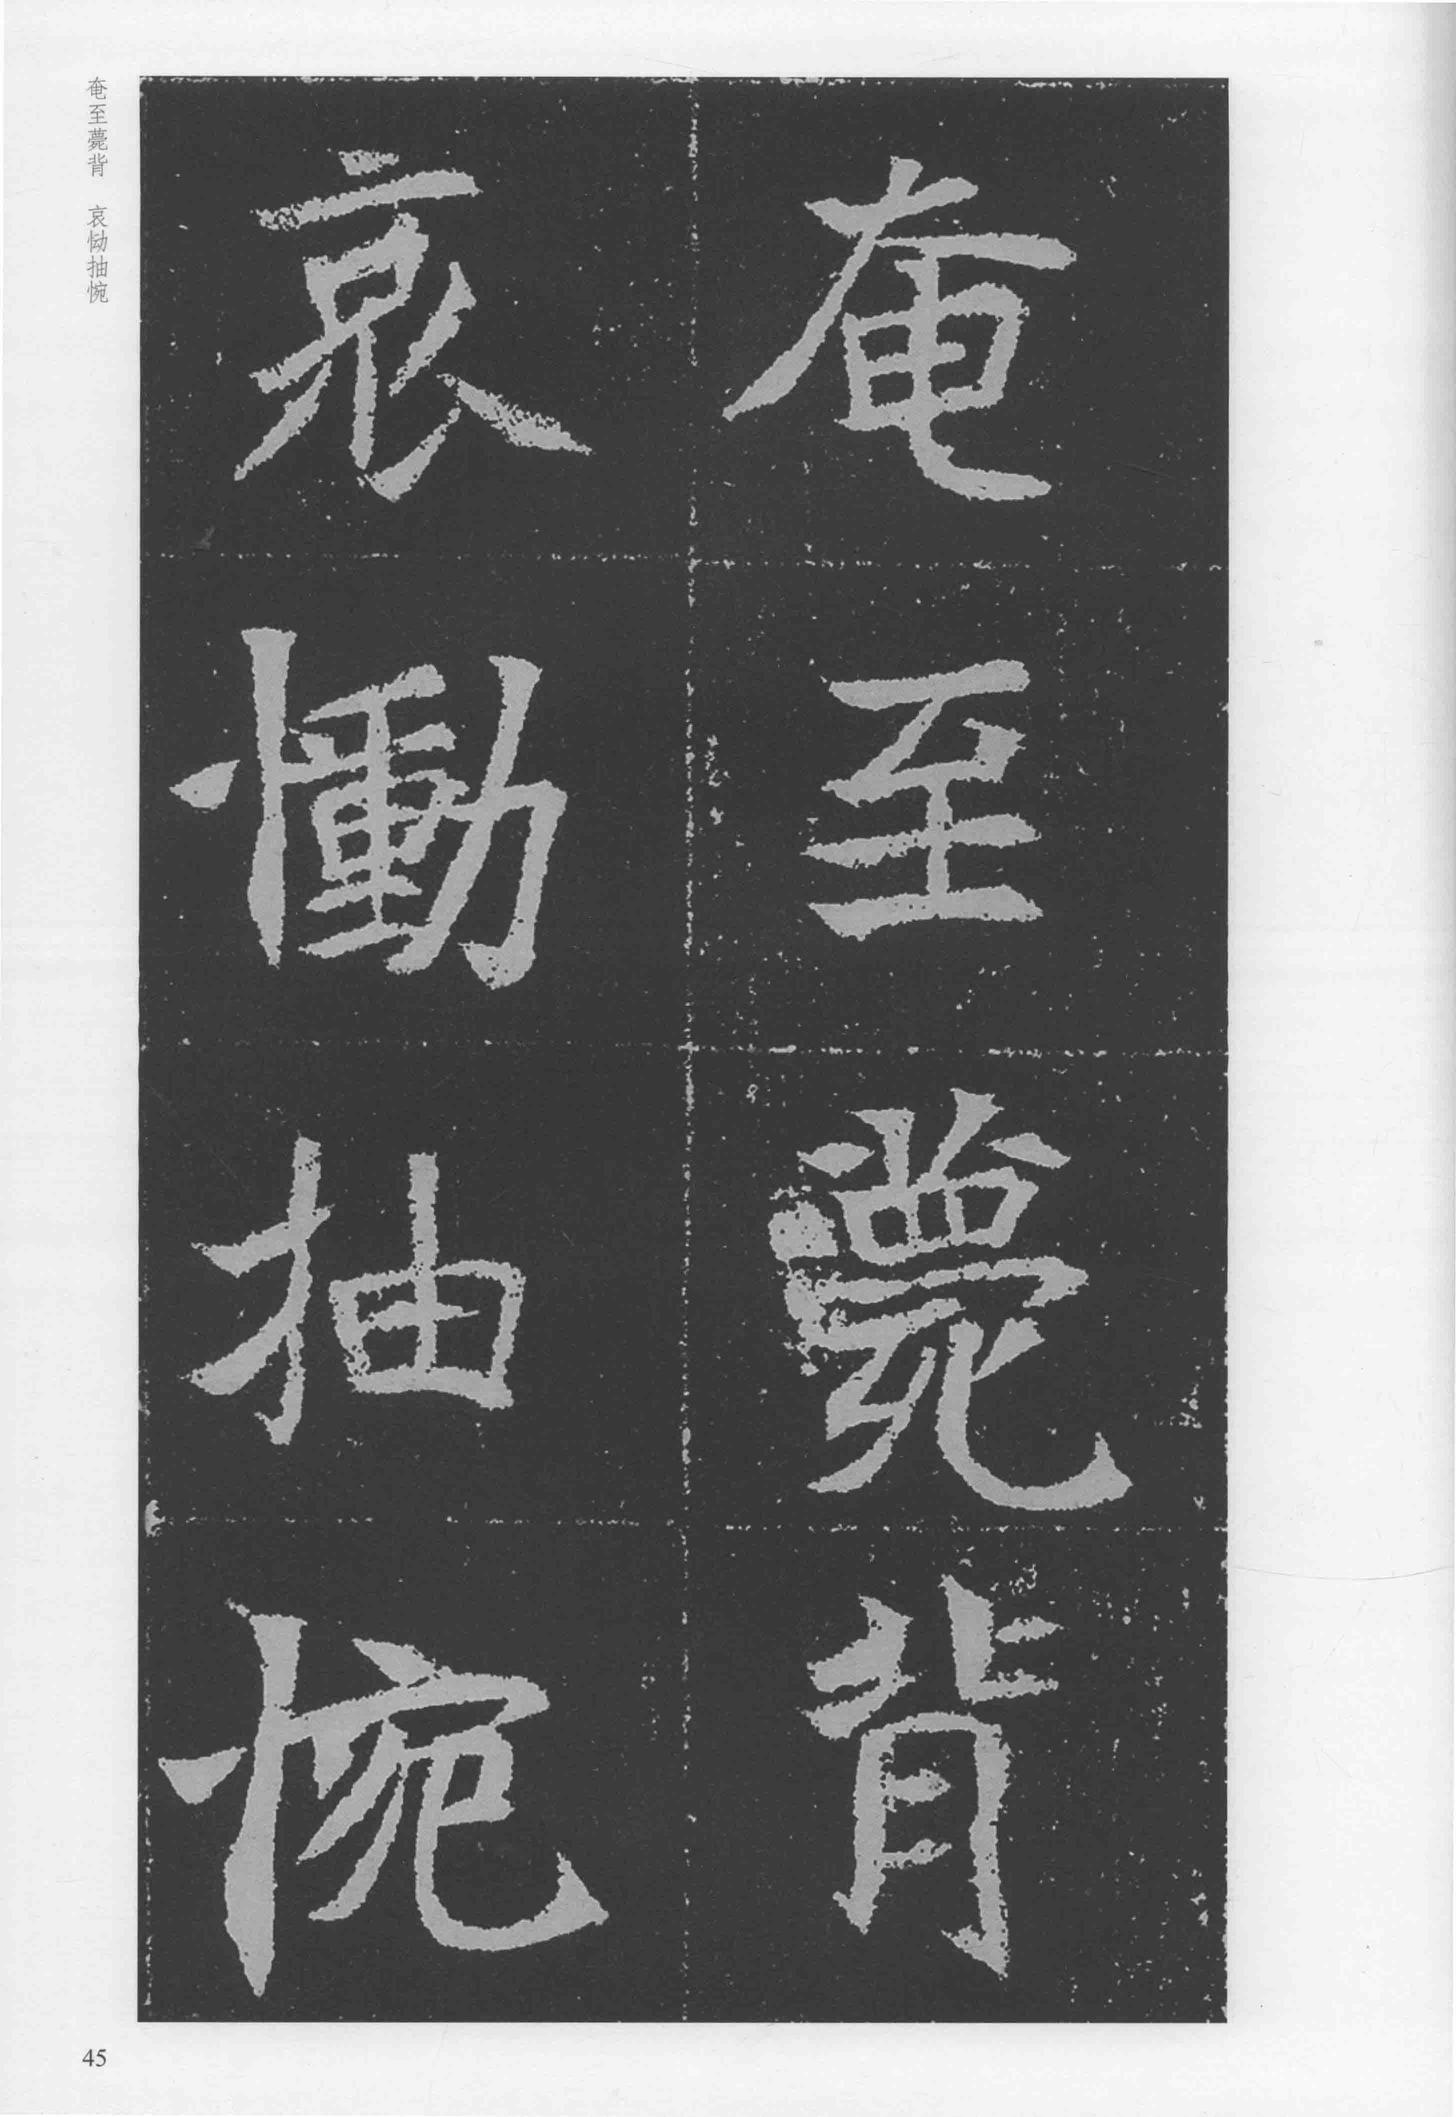 奄至薨背
哀慟抽惋
奄至薨背　哀恸抽惋
45